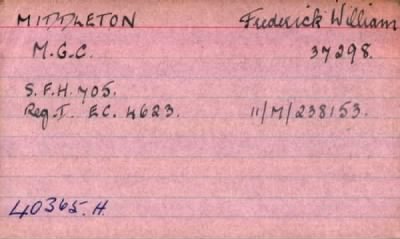 MIDDLETON Frederick William
M.G.C. 37298.
S.F.H. 705.
Reg.I. E.C. 4623. 11/M/238153.
40365.H.